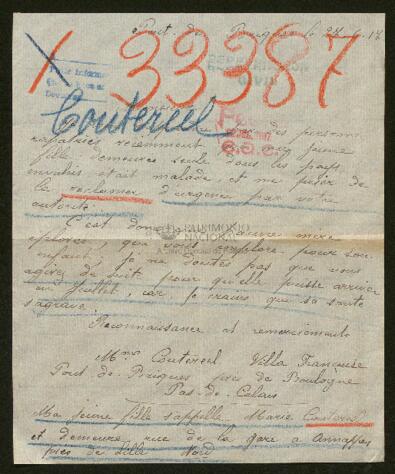 Pont de Briques le 27-6-17
X 33387
Coutereel
des personnes
rapatriées récemment que ma jeune
fille demeurée seule dans les pays
envahis était malade et me prier de
la réclamer d'urgence par votre
autorité.
C'est donc mère
éplorée, que vous implore pour son
enfant, je ne doutes pas que vous
agirez de suite pour qu'elle puisse arriver
en Juillet, car je crains que sa santé
s'agrave.
Reconnaissance et remerciements
Mme Coutereel Villa Française
Pont-de-Briques près de Boulogne
Pas-de-Calais
Ma jeune fille s'appelle Marie Coutereel
et demeure, rue de la gare à Annappes
près de Lille Nord
PATRIMONIO
NACIONAL